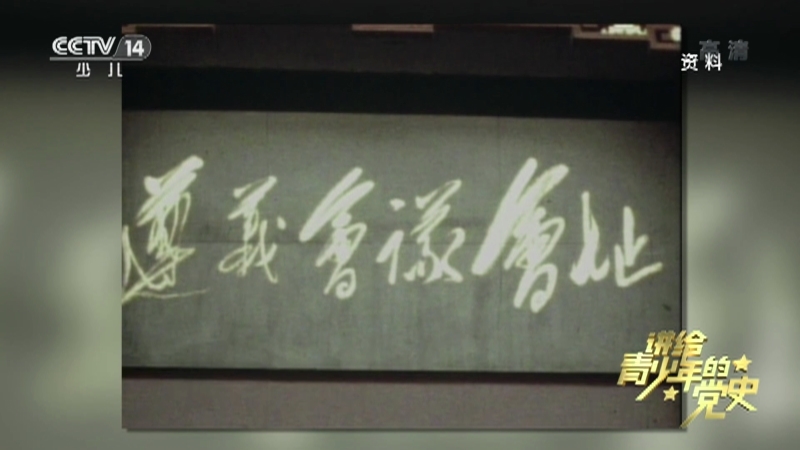 CCTV 14
少儿
高清
资料
遵義會議會址
讲给
青少年的
党史